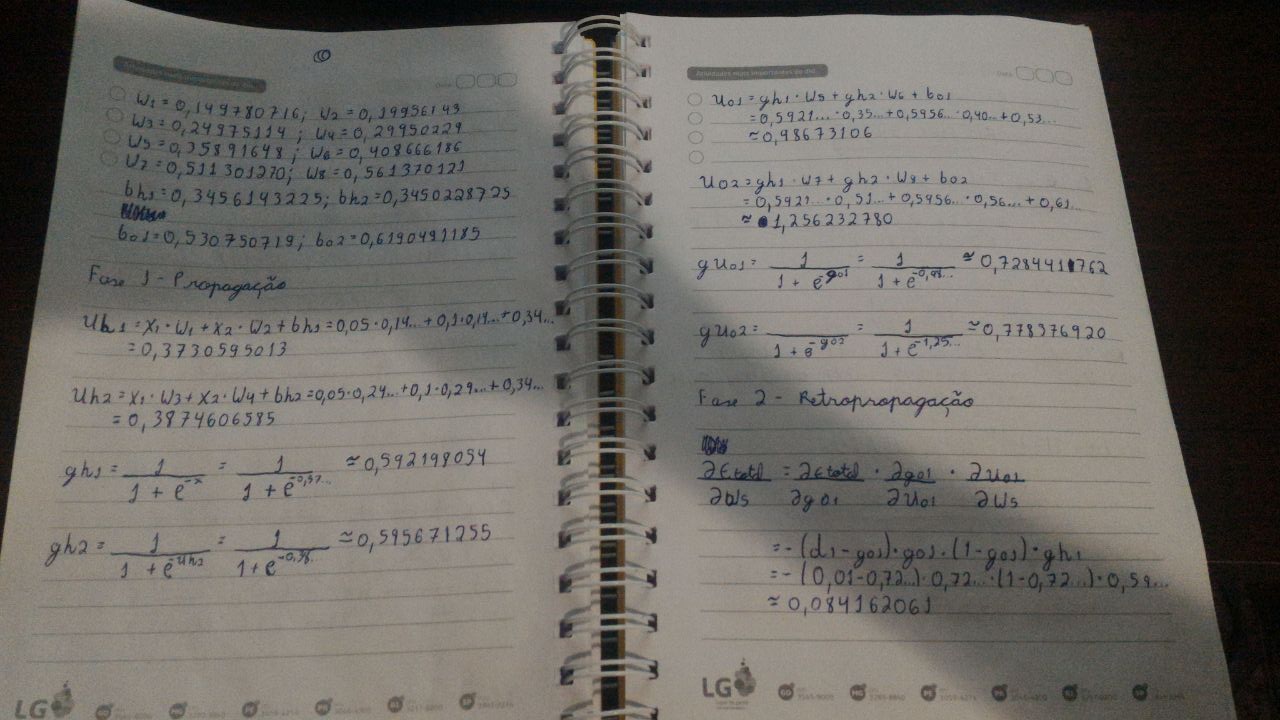 W1 = 0,149780716; W2 = 0,19956143
W3 = 0,24975114 ; W4 = 0,29950229
W5 = 0,35891648 ; W6 = 0,408666186
W7 = 0,511301270; W8 = 0,561370121
bh1 = 0,3456143225; bh2 = 0,3450228725
bo1 = 0,530750719; bo2 = 0,6190491185
Fase 1 - Propagação
Uh1 = X1 · W1 + X2 · W2 + bh1 = 0,05·0,14... + 0,1·0,19... + 0,34...
= 0,3730595013
Uh2 = X1 · W3 + X2 · W4 + bh2 = 0,05·0,24... + 0,1·0,29... + 0,34...
= 0,3874606585
gh1 = 1 / (1 + e^-x) = 1 / (1 + e^-0,37...) ≈ 0,592198054
gh2 = 1 / (1 + e^-Uh2) = 1 / (1 + e^-0,38..) ≈ 0,595671255
LG
Atividades mais importantes do dia
Data
Uo1 = gh1 · W5 + gh2 · W6 + bo1
= 0,5921... · 0,35... + 0,5956... · 0,40... + 0,53...
≈ 0,98673106
Uo2 = gh1 · W7 + gh2 · W8 + bo2
= 0,5921... · 0,51... + 0,5956... · 0,56... + 0,61...
≈ 1,256232780
gUo1 = 1 / (1 + e^-go1) = 1 / (1 + e^-0,98...) ≈ 0,728441762
gUo2 = 1 / (1 + e^-go2) = 1 / (1 + e^-1,25...) ≈ 0,778376920
Fase 2 - Retropropagação
∂Etotal/∂W5 = ∂Etotal/∂go1 · ∂go1/∂Uo1 · ∂Uo1/∂W5
= -(d1 - go1) · go1 · (1 - go1) · gh1
= -(0,01 - 0,72..) · 0,72... · (1 - 0,72...) · 0,59...
≈ 0,084162061
LG